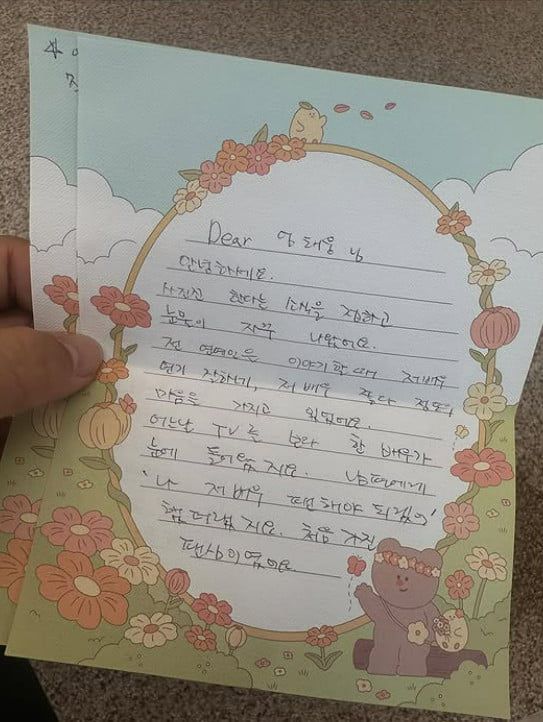 Dear 엄태웅 님
안녕하세요.
사진전 한다는 소식을 접하고
눈물이 자꾸 나왔어요.
전 연예인은 이야기 할 때 저 배우
연기 잘하지, 저 배우 잘다 정도,
마음을 가지고 있었어요.
어느날 TV를 보다 한 배우가
눈에 들어왔지요. 남편에게
'나 저 배우 팬해야 되겠어'
했더랬지요. 처음 가진
팬심이였어요.